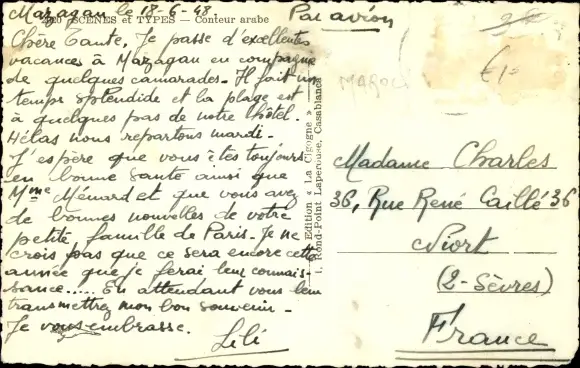 Mazagan le 18-6-48.
Par avion
SCÈNES et TYPES — Conteur arabe
Chère Tante, Je passe d'excellentes
vacances à Mazagan en compagnie
de quelques camarades. Il fait un
temps splendide et la plage est
à quelques pas de notre hôtel.
Hélas nous repartons mardi.
J'espère que vous êtes toujours
en bonne santé ainsi que
Mme Ménard et que vous avez
de bonnes nouvelles de votre
petite famille de Paris. Je ne
crois pas que ce sera encore cette
année que je ferai leur connais-
sance..... En attendant vous leur
transmettrez mon bon souvenir.
Je vous embrasse.
Lili
Edition « La Cigogne »
1, Rond-Point Lapérouse, Casablanca
MAROC
€1=
Madame Charles
36, Rue René Caillé 36
Niort
(2-Sèvres)
France